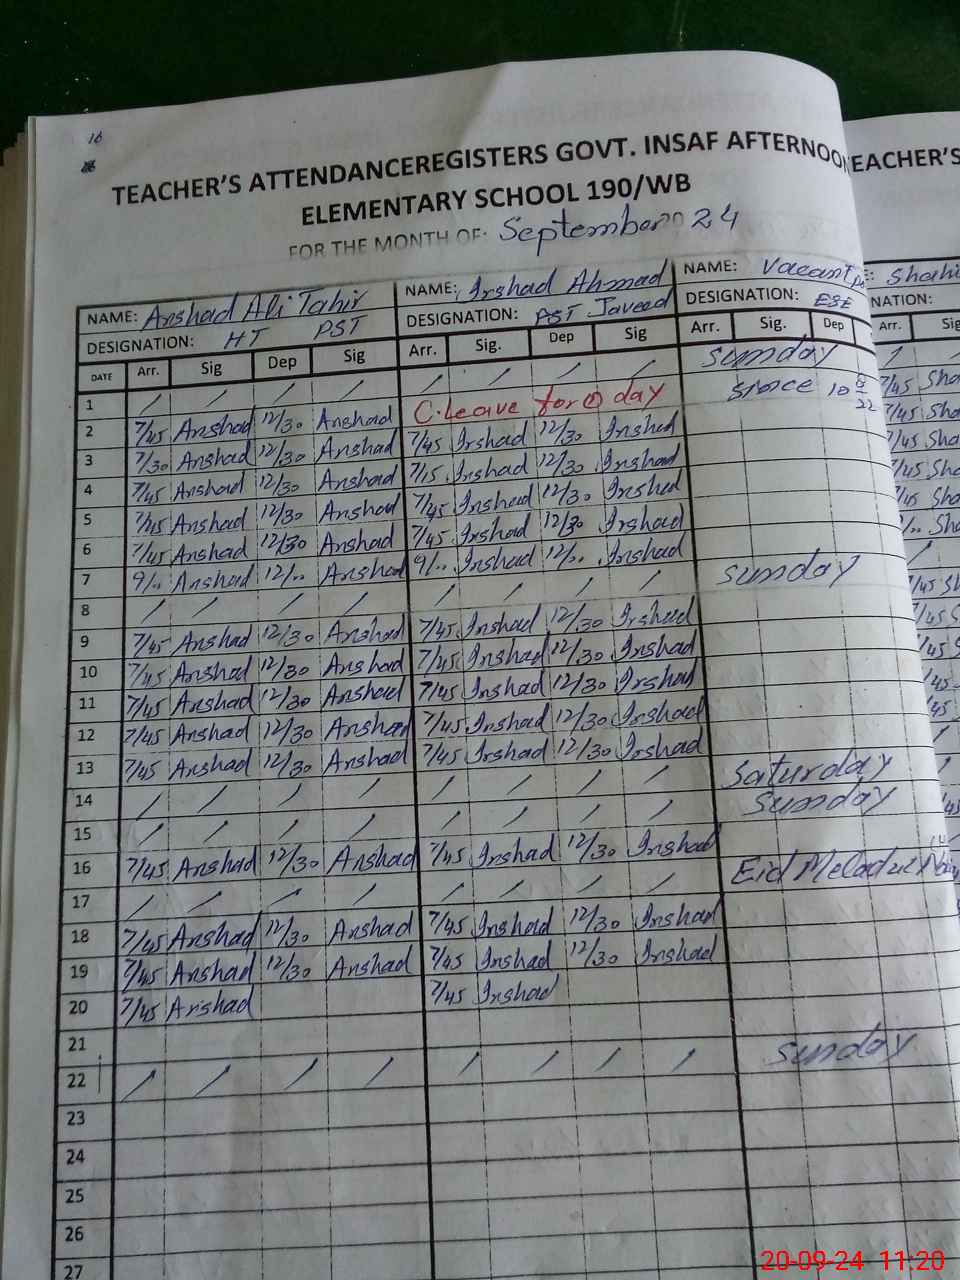 16
TEACHER'S ATTENDANCEREGISTERS GOVT. INSAF AFTERNOO
ELEMENTARY SCHOOL 190/WB
FOR THE MONTH OF: September 2024
NAME: Arshad Ali Tahir NAME: Irshad Ahmad NAME: Vacant
DESIGNATION: HT PST DESIGNATION: PST Javeed DESIGNATION: ESE
DATE Arr. Sig Dep Sig Arr. Sig. Dep Sig Arr. Sig. Dep
1 / / / / / / / / Sunday
2 7/45 Arshad 12/30 Arshad C.Leave for ① day since 10 8 22
3 7/30 Arshad 12/30 Arshad 7/45 Irshad 12/30 Irshad
4 7/45 Arshad 12/30 Arshad 7/15 Irshad 12/30 Irshad
5 7/45 Arshad 12/30 Arshad 7/45 Irshad 12/30 Irshad
6 7/45 Arshad 12/30 Arshad 7/45 Irshad 12/30 Irshad
7 9/.. Arshad 12/.. Arshad 9/.. Irshad 12/.. Irshad
8 / / / / / / / / Sunday
9 7/45 Arshad 12/30 Arshad 7/45 Irshad 12/30 Irshad
10 7/45 Arshad 12/30 Arshad 7/45 Irshad 12/30 Irshad
11 7/45 Arshad 12/30 Arshad 7/45 Irshad 12/30 Irshad
12 7/45 Arshad 12/30 Arshad 7/45 Irshad 12/30 Irshad
13 7/45 Arshad 12/30 Arshad 7/45 Irshad 12/30 Irshad
14 / / / / / / / / Saturday
15 / / / / / / / / Sunday
16 7/45 Arshad 12/30 Arshad 7/45 Irshad 12/30 Irshad
17 / / / / / / / / Eid Meladul Nabi
18 7/45 Arshad 12/30 Arshad 7/45 Irshad 12/30 Irshad
19 7/45 Arshad 12/30 Arshad 7/45 Irshad 12/30 Irshad
20 7/45 Arshad 7/45 Irshad
21
22 / / / / / / / / Sunday
23
24
25
26
27
EACHER'S
: Shahi
NATION:
Arr. Sig
/
7/45 Sha
7/45 Sha
7/45 Sha
7/45 Sha
7/45 Sha
20-09-24 11:20